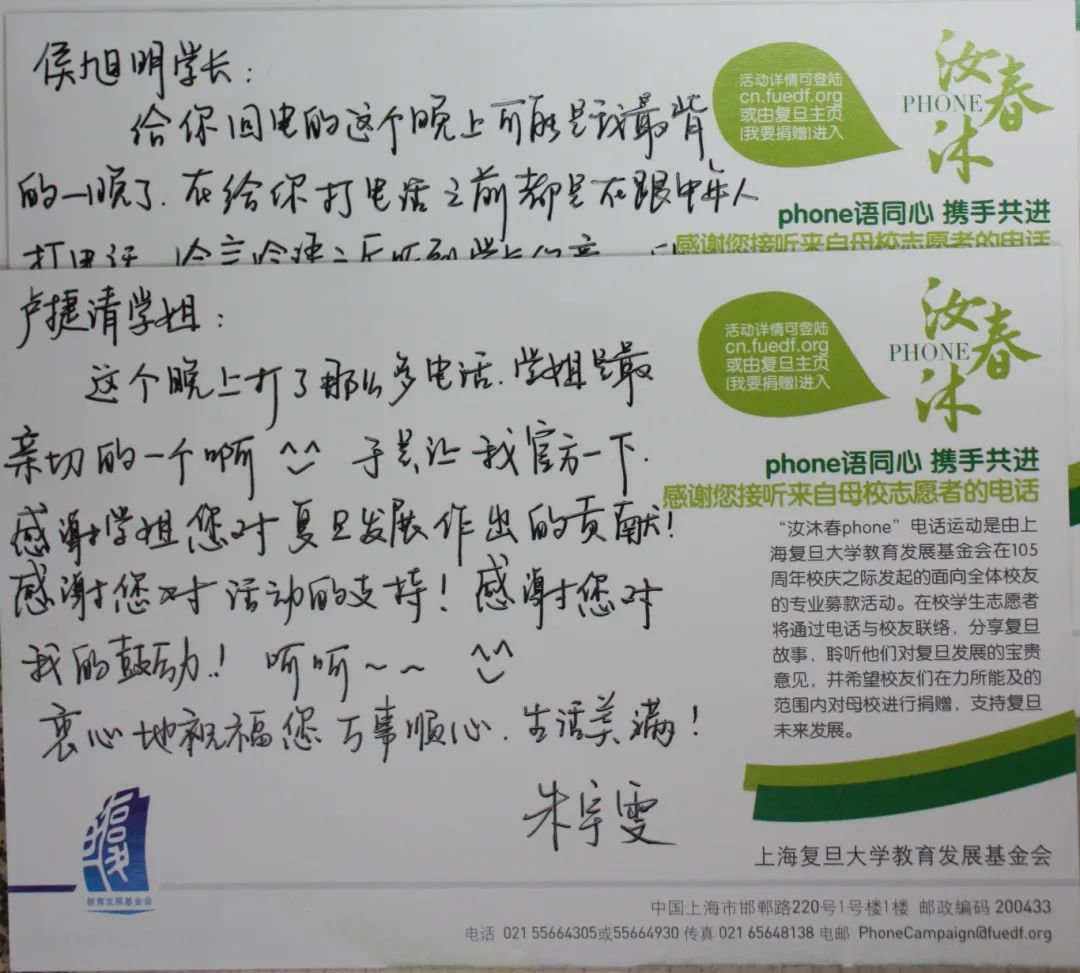 侯旭明学长：
给你回电的这个晚上可能是我最背
的一晚了. 在给你打电话之前都是在跟中年人
打电话
活动详情可登陆
cn.fuedf.org
或由复旦主页
[我要捐赠]进入
汝
PHONE 春
沐
phone语同心 携手共进
感谢您接听来自母校志愿者的电话
卢捷清学姐：
这个晚上打了那么多电话. 学姐是最
亲切的一个啊 ^^ 于是让我官方一下.
感谢学姐您对复旦发展作出的贡献!
感谢您对活动的支持! 感谢您对
我的鼓励! 呵呵~~ ^^
衷心地祝福您万事顺心. 生活美满!
朱宇雯
活动详情可登陆
cn.fuedf.org
或由复旦主页
[我要捐赠]进入
汝
PHONE 春
沐
phone语同心 携手共进
感谢您接听来自母校志愿者的电话
“汝沐春phone”电话运动是由上
海复旦大学教育发展基金会在105
周年校庆之际发起的面向全体校友
的专业募款活动。在校学生志愿者
将通过电话与校友联络，分享复旦
故事，聆听他们对复旦发展的宝贵
意见，并希望校友们在力所能及的
范围内对母校进行捐赠，支持复旦
未来发展。
教育发展基金会
上海复旦大学教育发展基金会
中国上海市邯郸路220号1号楼1楼 邮政编码 200433
电话 021 55664305或55664930 传真 021 65648138 电邮 PhoneCampaign@fuedf.org